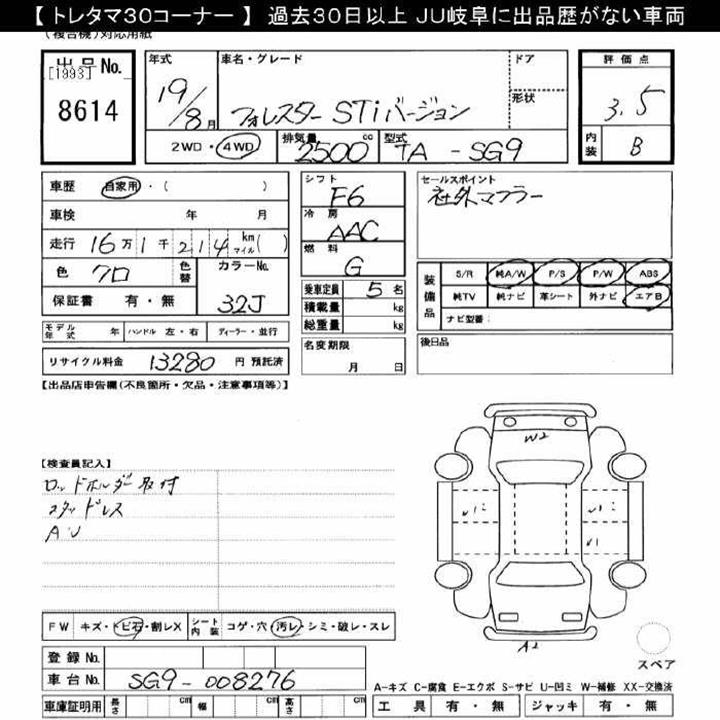 【 トレタマ30コーナー 】 過去30日以上 JU岐阜に出品歴がない車両
(複合機)対応用紙
出品No.
[1993]
8614
年式
19/8月
車名・グレード
フォレスター STiバージョン
ドア
形状
評価点
3.5
内装
B
2WD・4WD
排気量
2500cc
型式
TA - SG9
車歴 自家用・( )
車検 年 月
走行 16万1千214km マイル( )
色 クロ 色替
カラーNo.
32J
保証書 有・無
モデル年式 年 ハンドル 左・右 ディーラー・並行
リサイクル料金 13280 円 預託済
シフト
F6
冷房
AAC
燃料
G
乗車定員 5名
積載量 kg
総重量 kg
名変期限
月 日
セールスポイント
社外マフラー
装備品
S/R 純A/W P/S P/W ABS
純TV 純ナビ 革シート 外ナビ エアB
ナビ型番:
後日品
【出品店申告欄(不良箇所・欠品・注意事項等)】
【検査員記入】
ロッドホルダー取付
スタッドレス
AU
W2
U1
U1
U1
A2
スペア
FW キズ・トビ石・割レX
シート内装 コゲ・穴・汚レ・シミ・破レ・スレ
登録No.
車台No. SG9-008276
車庫証明用 長さ cm 幅 cm 高さ cm
A-キズ C-腐食 E-エクボ S-サビ U-凹ミ W-補修 XX-交換済
工具 有・無 ジャッキ 有・無